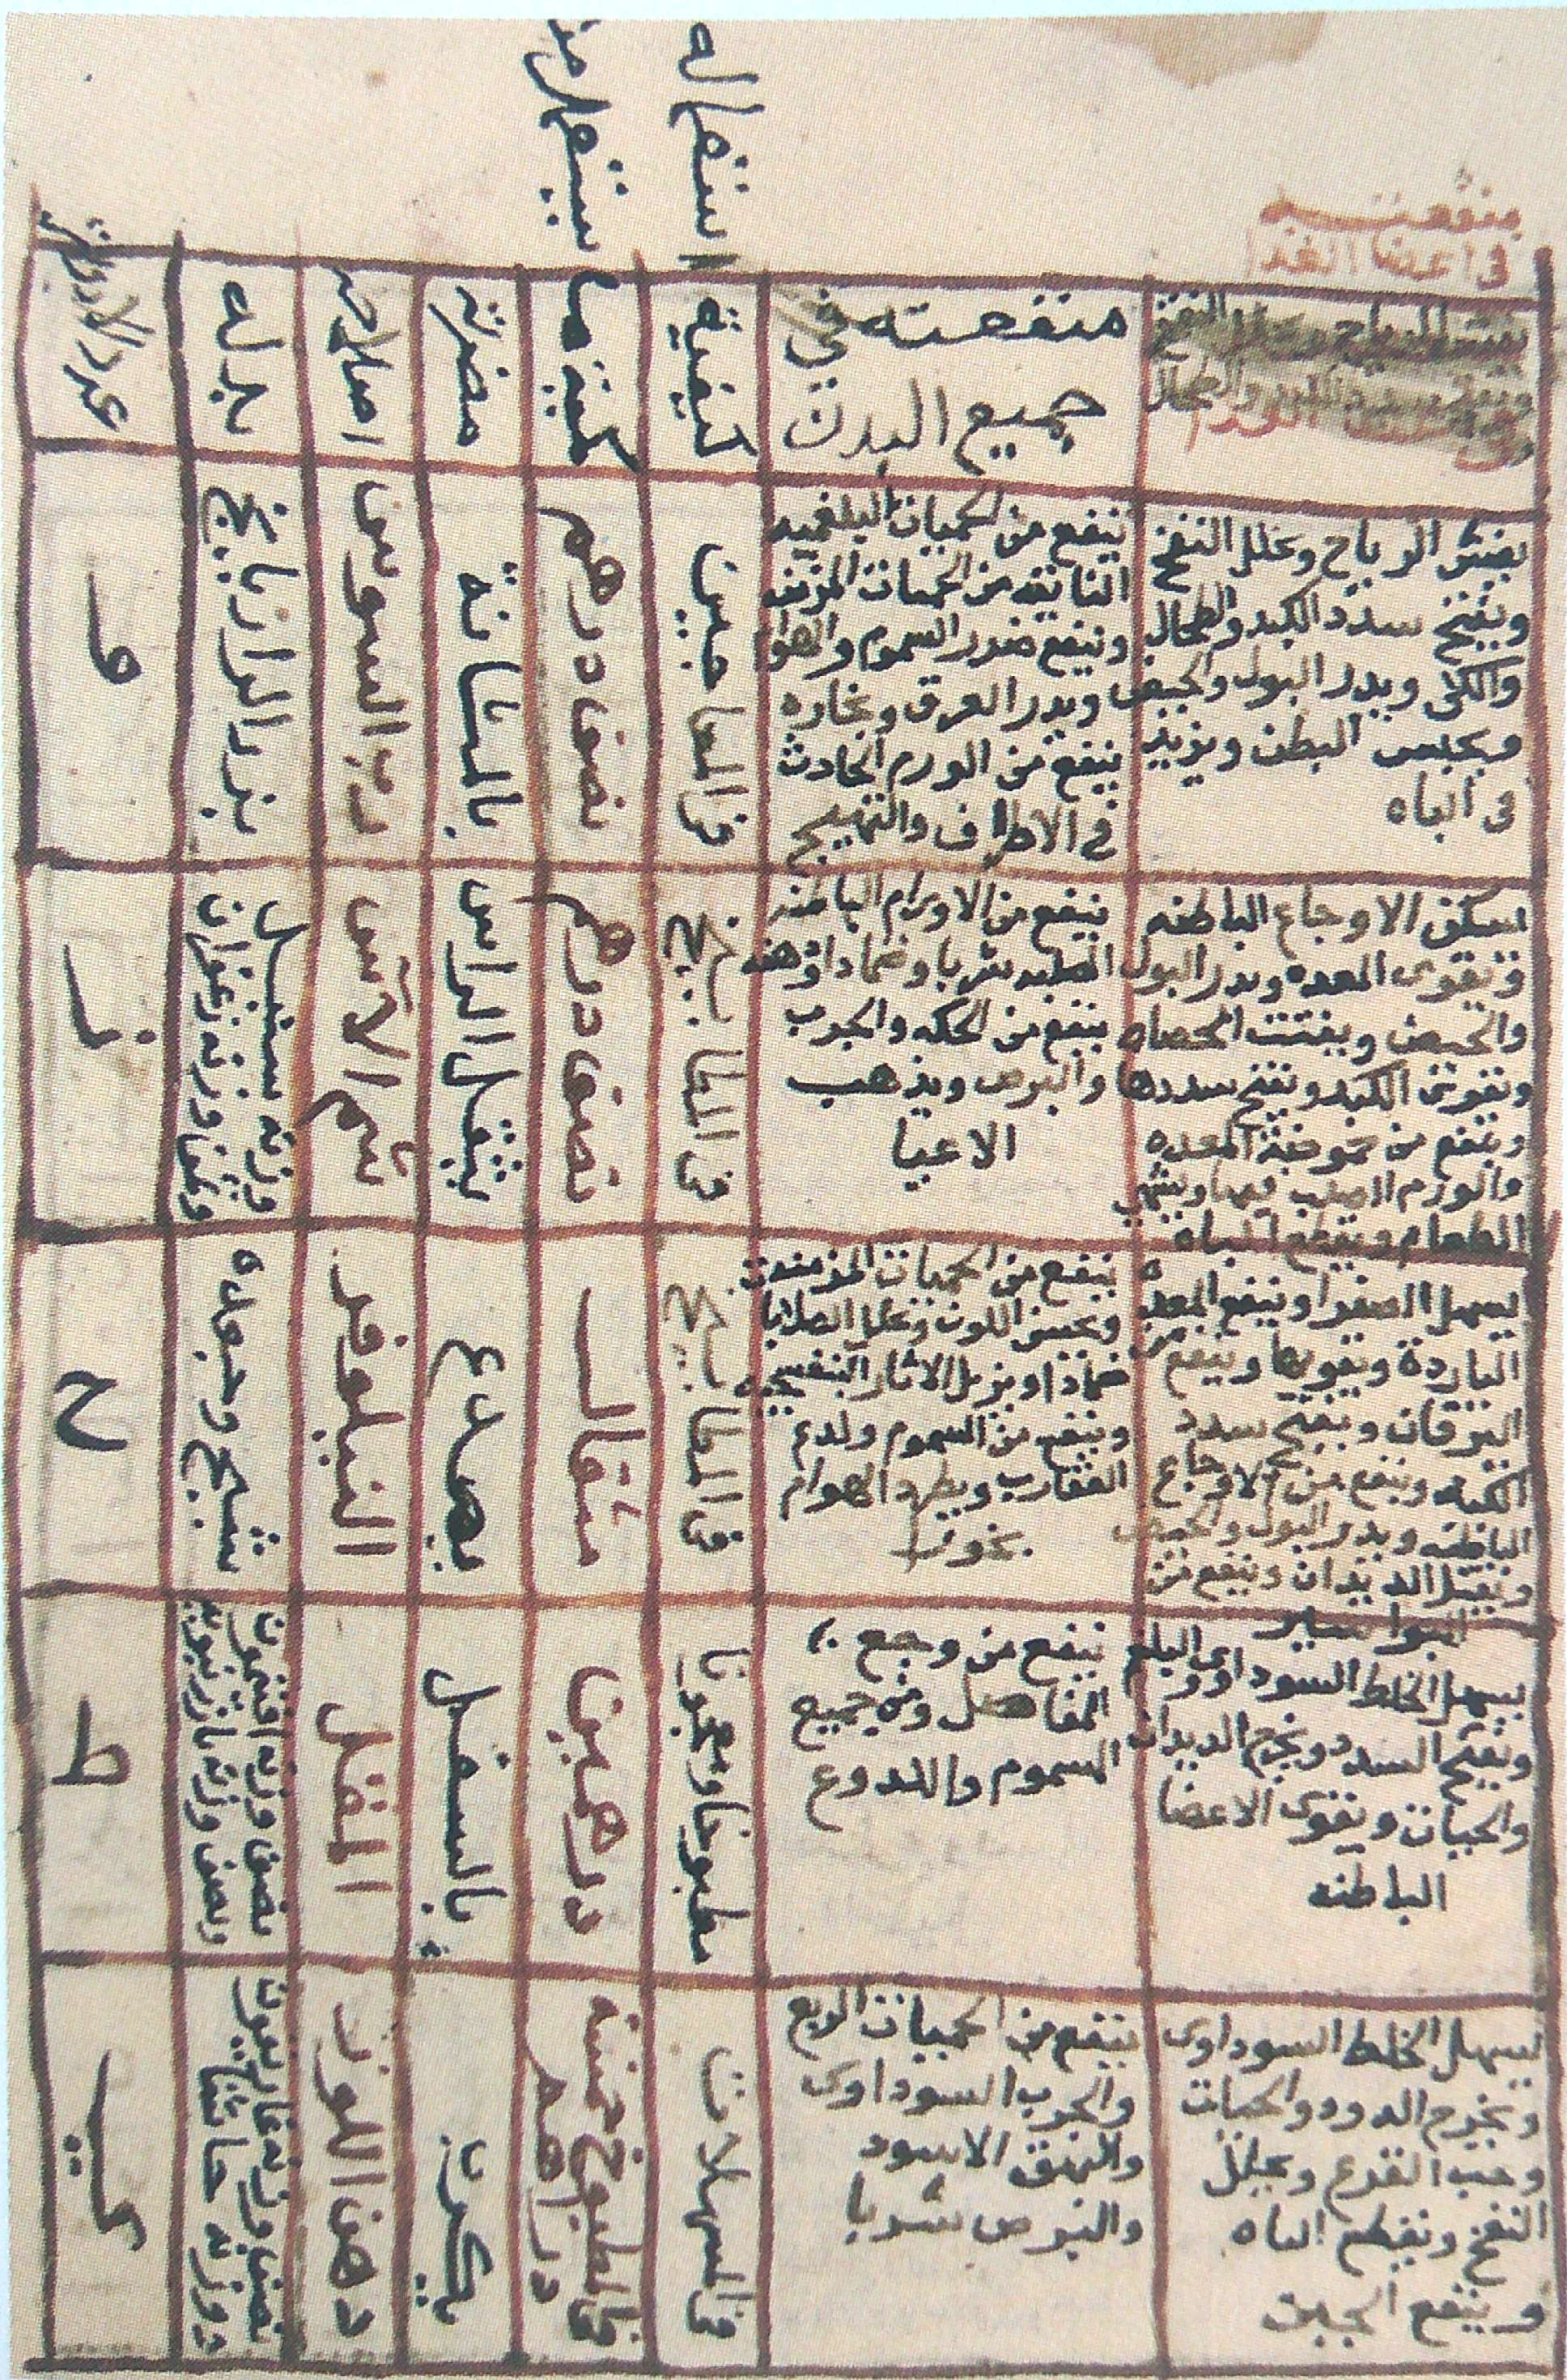 منفعته
في اعضا الغدا
منفعته في
جميع البدن
كيفية استعماله
كمية ما يستعمل منه
مضرته
اصلاحه
بدله
عدد الادوية
يفش الرياح ويحلل النفخ
ويفتح سدد الكبد والطحال
والكلى ويدر البول والحيض
ويحبس البطن ويزيد
في الباه
ينفع من الحميات البلغميه
العتايقه من الحميات المزمنه
وينفع ضرر السموم والهوام
ويدر العرق وبخاره
ينفع من الورم الحادث
في الاطراف والتهييج
في المعاجين
نصف درهم
بالمثانة
رب السوس
بزر الرازيانج
و
يسكن الاوجاع الباطنه
ويقوى المعده ويدر البول
والحيض ويفتت الحصاه
ويقوى الكبد ويفتح سددها
وينفع من المعده
والورم الصلب فيها ويشهي
الطعام ويقطع الباه
ينفع من الاورام الباطنه
الصلبه شربا وضمادا ودهنه
ينفع من الحكه والجرب
والبرص ويذهب
الاعيا
في المطابيخ
نصف درهم
يثقل الراس
شم الآس
وزنه سنبل
ونصف وزنه زعفران
ز
يسهل الصفرا وينفع المعده
الباردة ويقويها وينفع من
اليرقان ويفتح سدد
الكبد وينفع من الاوجاع
الباطنه ويدر البول والحيض
ويقتل الديدان وينفع من
البواسير
ينفع من الحميات المزمنه
ويحسن اللون ويحلل الصلابات
ضمادا ويزيل الاثار البنفسجيه
وينفع من السموم ولدغ
العقارب ويطرد الهوام
بخورا
في المطابيخ
مثقال
يصدع
النيلوفر
شيح وجعده
ح
يسهل الخلط السوداوى والبلغم
ويفتح السدد ويخرج الديدان
والحيات ويقوى الاعضا
الباطنه
ينفع من وجع
المفاصل ومن جميع
السموم واللدوع
مطبوخا ومعجونا
درهمين
بالسفل
المقل
نصف وزنه افتيمون
ونصف وزنه
ط
يسهل الخلط السوداوى
ويخرج الدود والحيات
وحب القرع ويحلل
النفخ ويقطع الباه
وينفع الجبن
ينفع من الحميات الربع
والجرب السوداوى
والبهق الاسود
والبرص شربا
في المسهلات
في المطبوخ خمسة
دراهم
يكرب
دهن اللوز
نصف وزنه غاريقون
ووزنه حاشا
ي